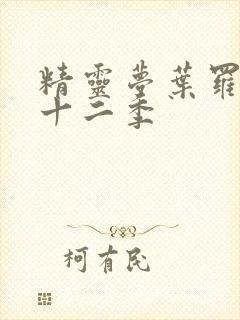 精靈夢葉羅
十二季
柯有民